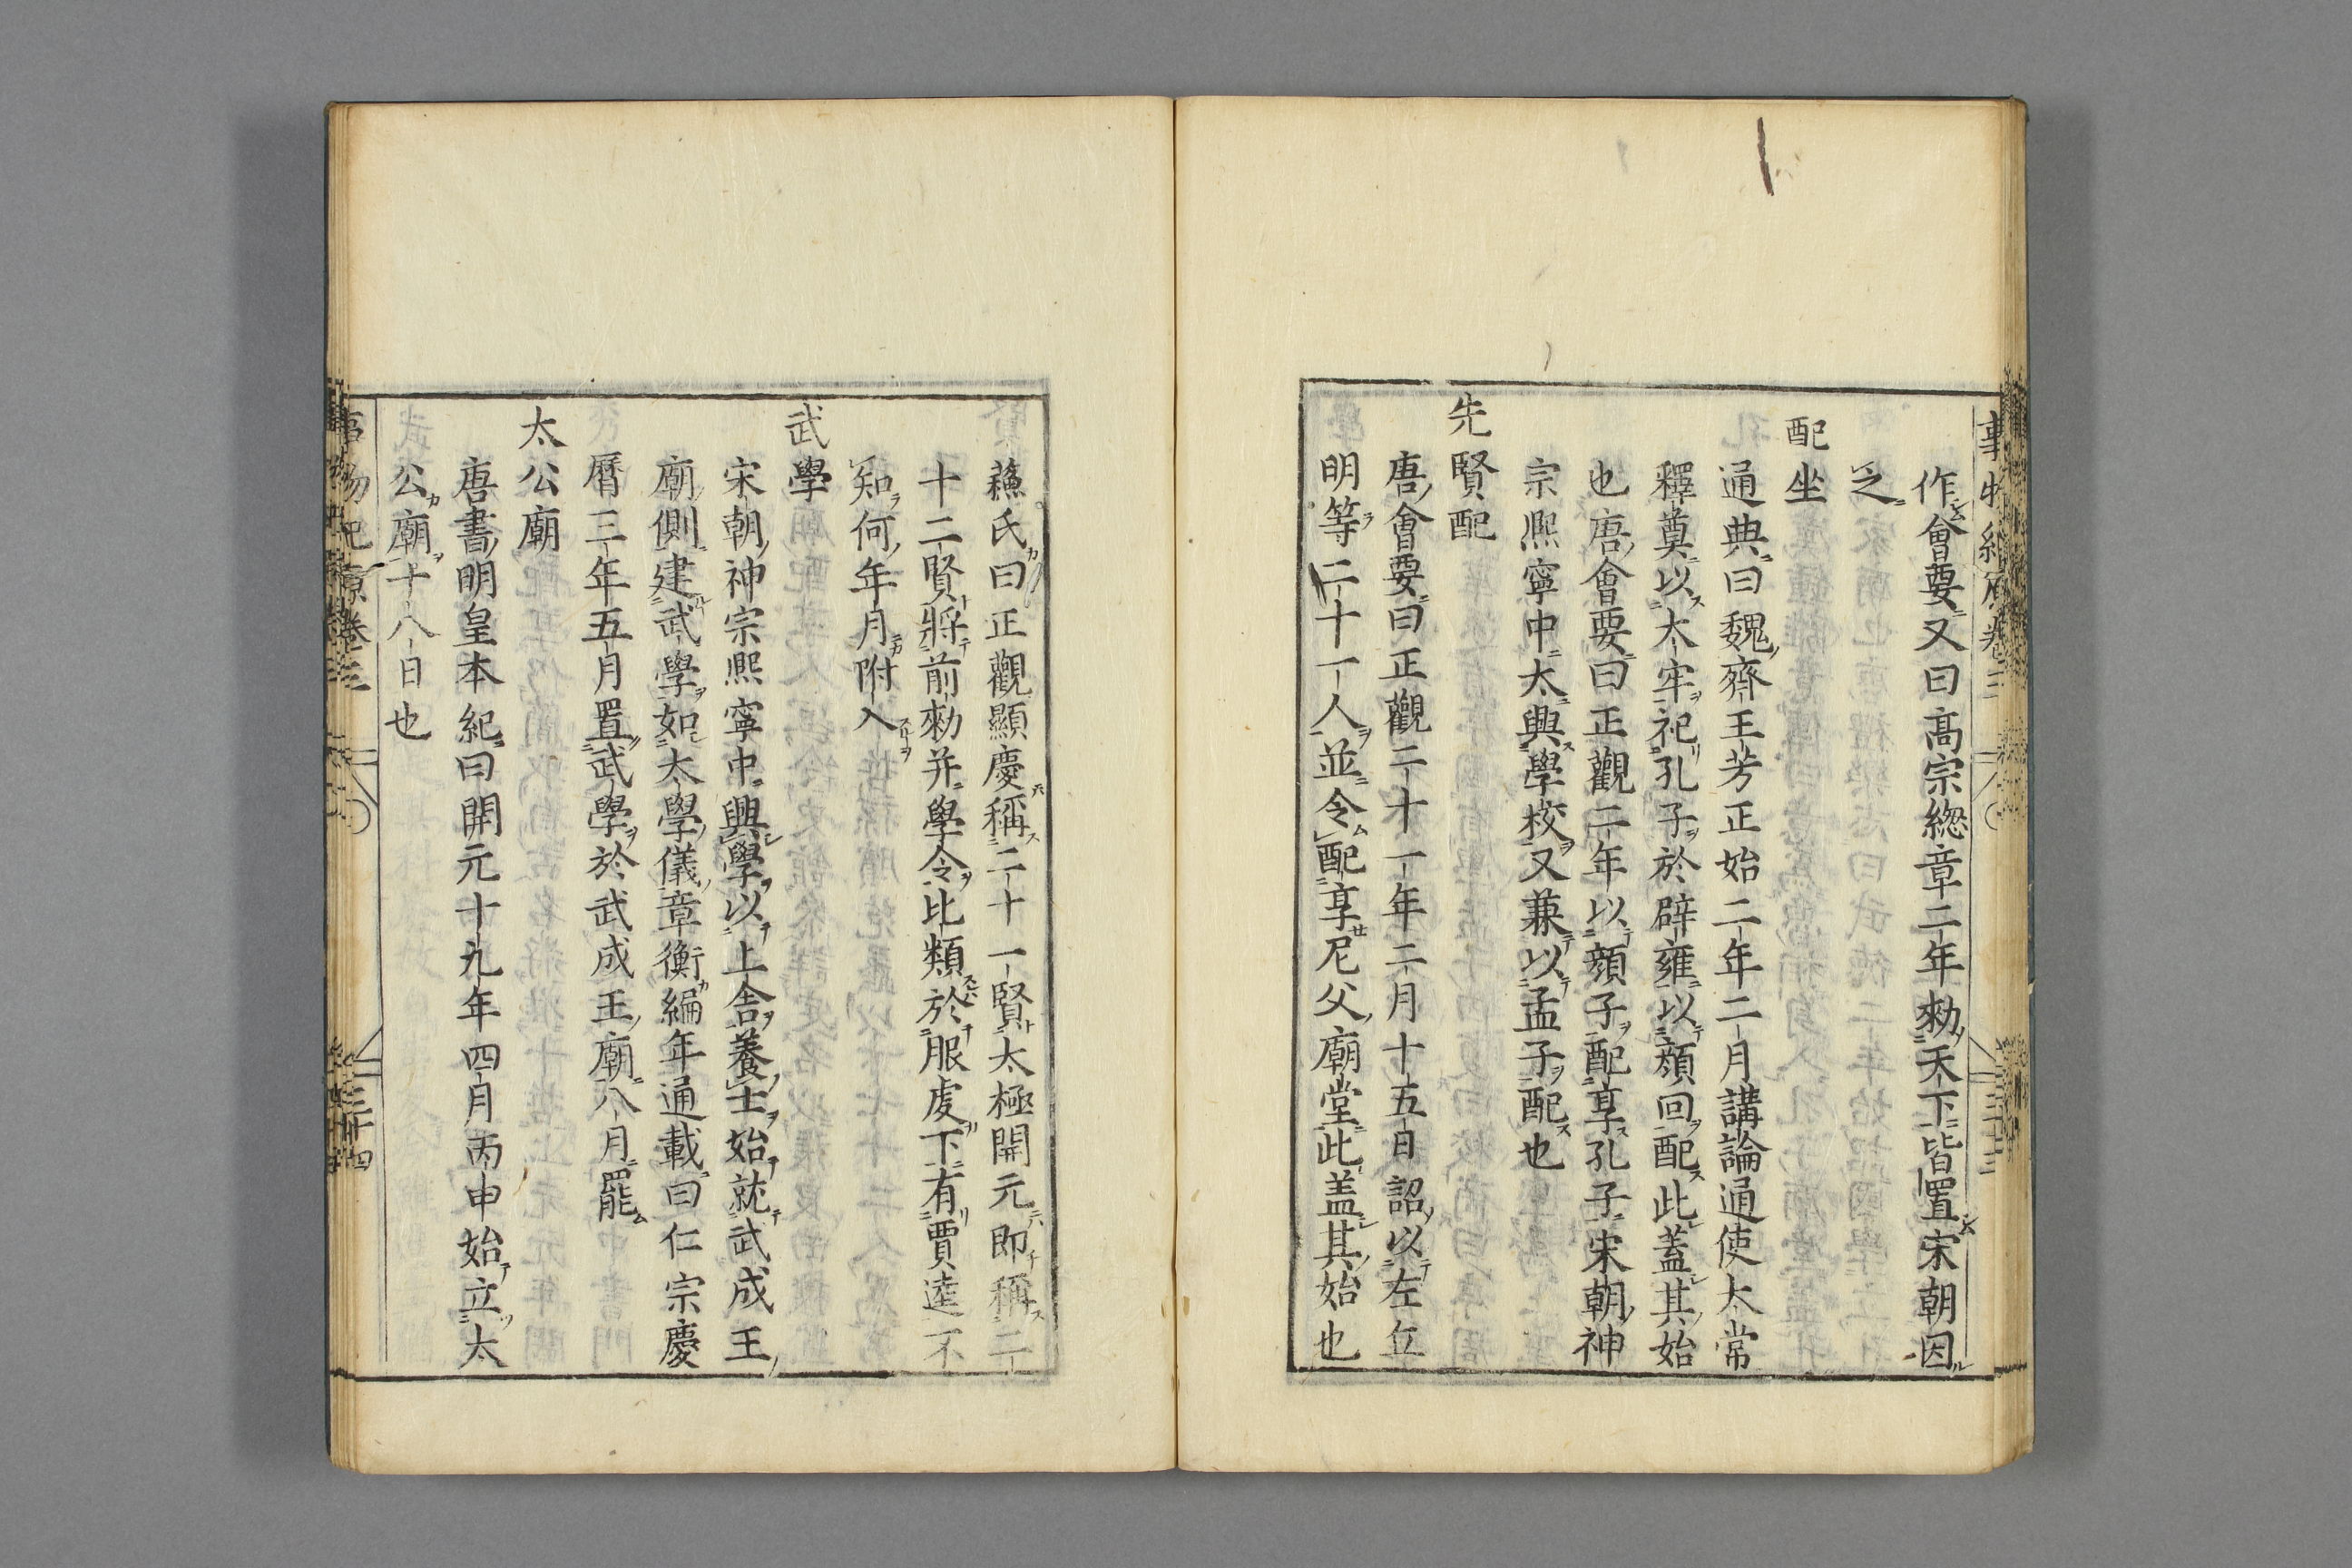 作會要又曰高宗緫章二年勑天下皆置宋朝因
之
配坐
通典曰魏齊王芳正始二年二月講論通使太常
釋奠以太牢祀孔子於辟雍以顏回配此蓋其始
也唐會要曰正觀二年以顏子配享孔子宋朝神
宗熈寧中太興學校又兼以孟子配也
先賢配
唐會要曰正觀二十一年二月十五日詔以左丘
明等二十一人並令配享尼父廟堂此盖其始也
蘓氏曰正觀顯慶稱二十一賢太極開元即稱二
十二賢將前勑并學令比類於服虔下有賈逵不
知何年月附入
武學
宋朝神宗熈寧中興學以上舎養士始就武成王
廟側建武學如太學儀章衡編年通載曰仁宗慶
曆三年五月置武學於武成王廟八月罷
太公廟
唐書明皇本紀曰開元十九年四月丙申始立太
公廟十八日也